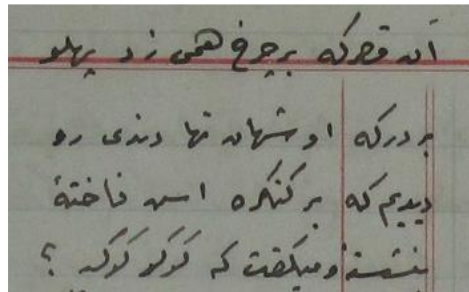 آن قصر که بر چرخ همی زد پهلو
بر درگه او شهان نهادندی رو
دیدیم که بر کنگره اش فاخته
بنشسته و میگفت که کوکو کوکو ؟